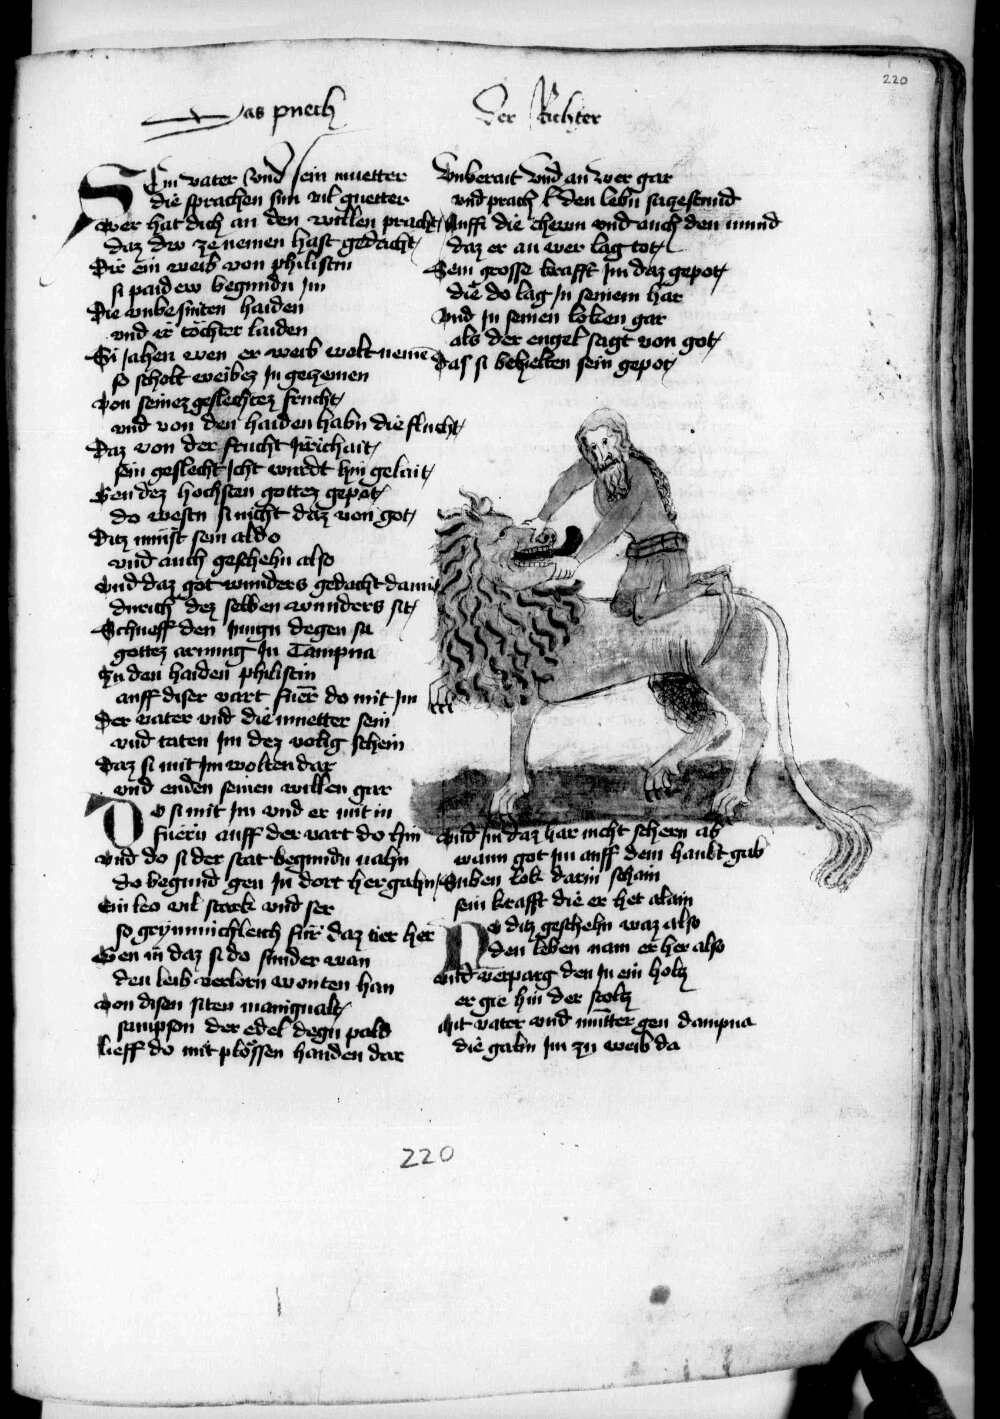 220
Das puech
Der Richter
Sein vater vnd sein muetter
die sprachen sun vil guetter
wer hat dich an den willen pracht
daz dw ze nemen hast gedacht
Dir ein weib von philistin
si paidew begundn im
Die vnbesniten haiden
vnd er töchter laiden
Si jahen wen er weib wolt nemen
so scholt weibez in gezemen
von seinez geslechtez frucht
vnd von den haiden habn die flucht
Daz von der frucht
sein geslecht icht wurdt hin gelait
Gen dez hochsten gottez gepot
do westn si nicht daz von got
Ditz müst sein aldo
vnd auch geschehn also
vnd daz got wunders gedacht damit
durich dez selben wunders sit
Schueff den jungn degen sa
gottez arnung in Tampna
zu den haiden philistin
auff diser vart fuer do mit im
Der vater vnd die muetter sein
vnd taten im dez volig schein
Daz si mit im wolten dar
vnd enden seinen willen gar
Do si mit im vnd er mit in
fuern auff der vart do hin
vnd do si der stat begundn nahn
do begund gen in dort her gahn
Ein leo vil stark vnd ser
so grymmichleich für daz tier her
Gen in daz si do sunder wan
den leib verlorn wonten han
von disen siten manigualt
sampson der edel degn pald
lieff do mit plossen handen dar
vnberait vnd an wer gar
vnd prach den lebn sazestund
Auff die chewn vnd auch den mund
daz er an wer lag tot
Sein grosse krafft im daz gepot
die do lag in seinem har
vnd in seinen loken gar
als der engel sagt von got
Das si behielten sein gepot
vnd im daz har nicht schern ab
wann got im auff dem haubt gab
Siben lok darin schain
sein krafft die er het alain
Do ditz geschehn waz also
den leben nam er her also
vnd verparg den in ein holtz
er gie hin der stoltz
mit vater vnd mutter gen dampna
die gabn im zu weib da
220